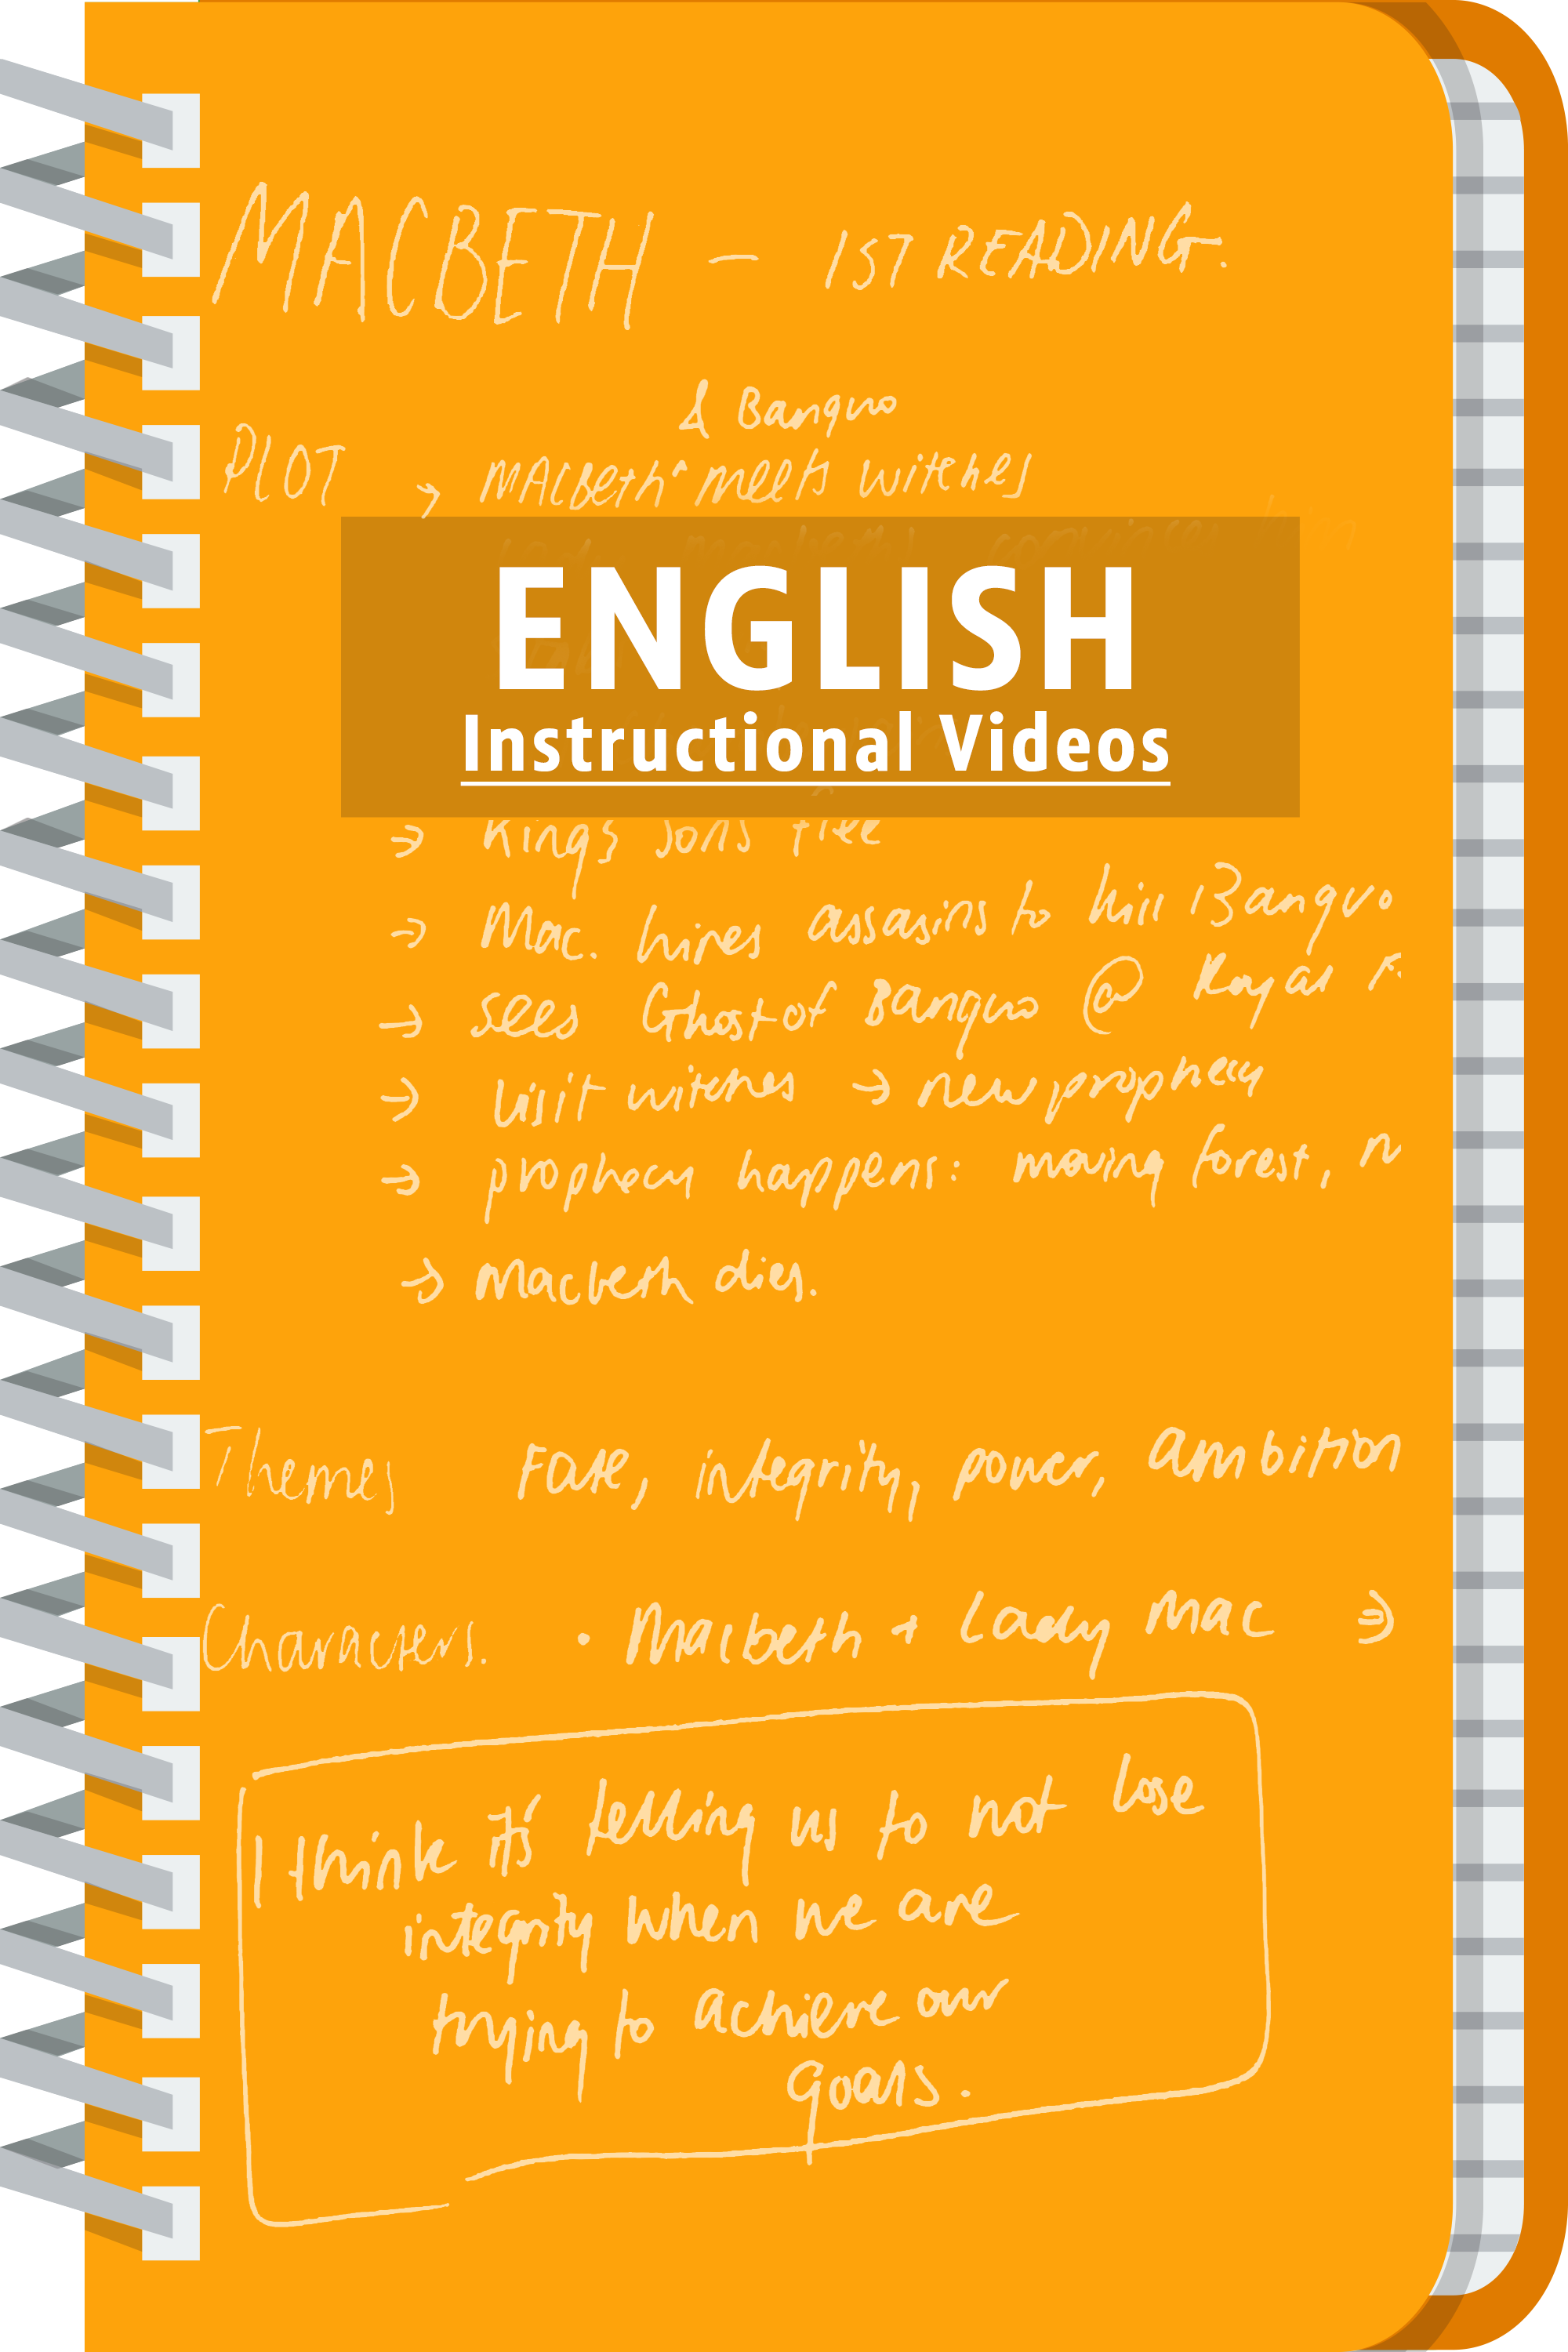 MACBETH — 1ST READING.
& Banquo
PLOT → MACBETH ^ meets witches
Lady Macbeth convinces him
ENGLISH
Instructional Videos
⇒ King's sons flee
⇒ Mac. hires assasins to kill Banquo
→ sees Ghost of Banquo @
⇒ visit witches → new prophecy
⇒ prophecy happens: moving forest,
→ Macbeth dies.
Themes Fate, integrity, power, ambition
Characters. • Macbeth + Lady Mac ⇒
I think it's telling us to not lose
integrity when we are
trying to achieve our
goals.